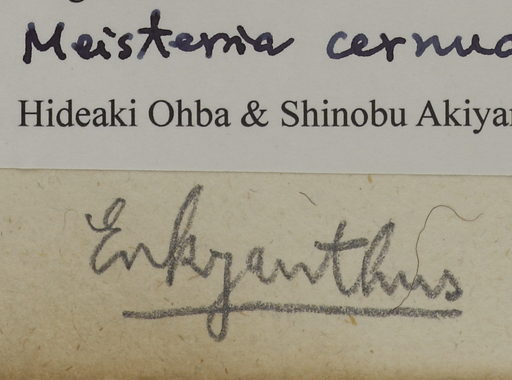 Meisteria cernua
Hideaki Ohba & Shinobu Akiya
Enkyanthus